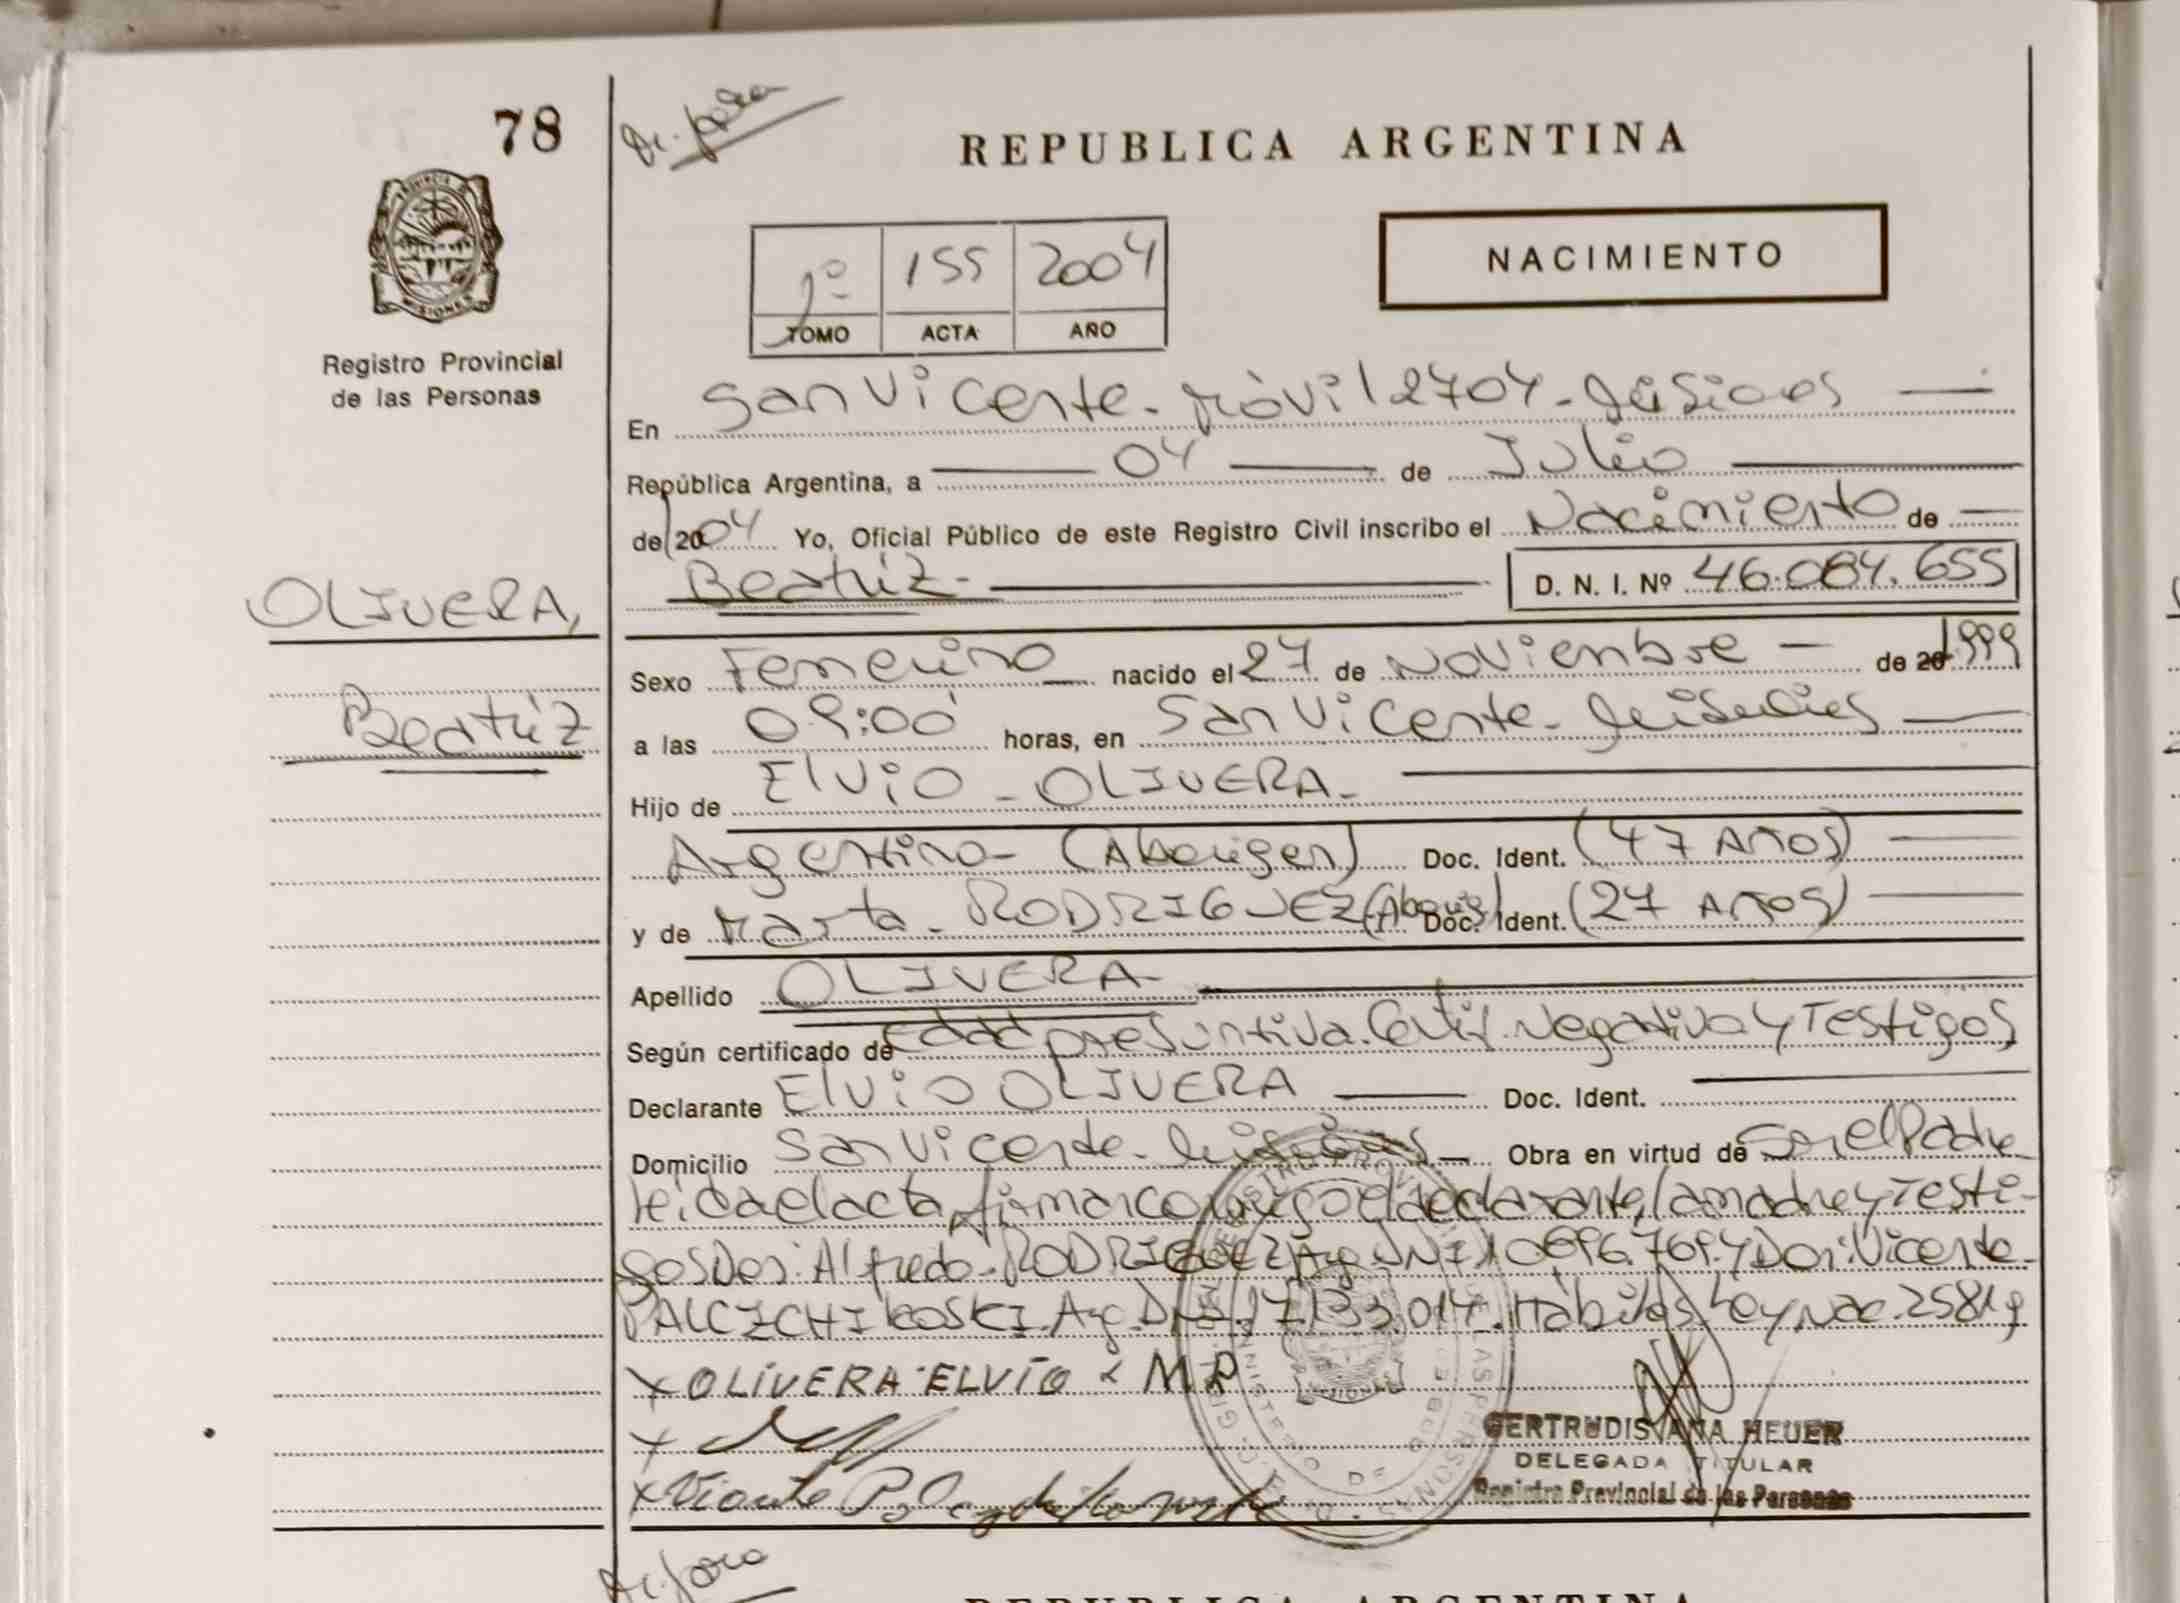 78
REPUBLICA ARGENTINA
PROVINCIA D
MISIONES
NACIMIENTO
1º 155 2004
TOMO ACTA AÑO
Registro Provincial
de las Personas
En San Vicente - Móvil 2704 - Misiones
República Argentina, a 04 de Julio
de 2004 Yo, Oficial Público de este Registro Civil inscribo el Nacimiento de
Beatriz- D. N. I. Nº 46.084.655
OLIVERA,
Beatriz
Sexo Femenino nacido el 27 de Noviembre - de 20 1999
a las 09:00 horas, en San Vicente - Misiones
Hijo de Elvio - OLIVERA -
Argentino - (Aborigen) Doc. Ident. (47 AÑOS)
y de Marta - RODRIGUEZ (Aborig) Doc. Ident. (27 AÑOS)
Apellido OLIVERA -
Según certificado de Edad presuntiva. Certif. Negativo y Testigos
Declarante Elvio OLIVERA Doc. Ident.
Domicilio San Vicente - Misiones Obra en virtud de Ser el Padre
leida el acta, firman conmigo el declarante, la madre y Testi-
gos Don: Alfredo - RODRIGUEZ Arg. DNI 10.696.769. y Don: Vicente -
PALCZCHIKOSKI. Arg. DNI. 17.133.017. Hábiles. Ley Nac. 25819
x OLIVERA ELVIO x M R
x
x Vicente
GERTRUDIS ANA HEUER
DELEGADA TITULAR
Registro Provincial de las Personas
REPUBLICA ARGENTINA